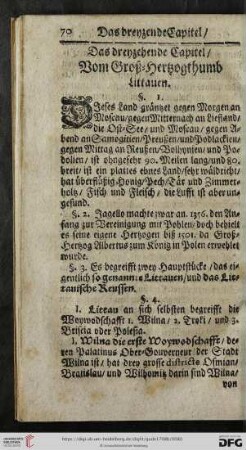 70 Das dreyzende Capitel/
Das dreyzehende Capitel/
Vom Groß-Hertzogthumb
Littauen.
§. 1.
Dieses Land gräntzet gegen Morgen an
Moscau/ gegen Mitternach an Lieffland/
die Ost-See/ und Moscau/ gegen A-
bend an Samogitien/ Preussen/ und Podlachien/
gegen Mittag an Reussen/ Volhynien/ und Po-
dolien/ ist ohngefehr 90. Meilen lang/ und 80.
breit/ ist ein plattes ebnes Land/ sehr wäldricht/
hat überflüßig Honig/ Pech/ Tär und Zimmer-
holtz/ Fisch und Fleisch/ die Lufft ist aber un-
gesund.
§. 2. Jagello machte zwar an. 1386. den An-
fang zur Vereinigung mit Pohlen/ doch behielt
es seine eigene Hertzogen biß 1501. da Groß-
Hertzog Albertus zum König in Polen erwehlet
wurde.
§. 3. Es begreifft zwey Hauptstücke/ das ei-
gentlich so genannte Littauen/ und das Lit-
tauische Reussen.
§. 4.
I. Littau an sich selbsten begreifft die
Woywodschafft 1. Wilna/ 2. Troki/ und 3.
Briscia oder Polesia.
1. Wilna die erste Woywodschafft/ de-
ren Palatinus Ober-Gouverneur der Stadt
Wilna ist/ hat drey grosse districte Osmian/
Braslau/ und Wilkomitz darin sind Wilna/
von